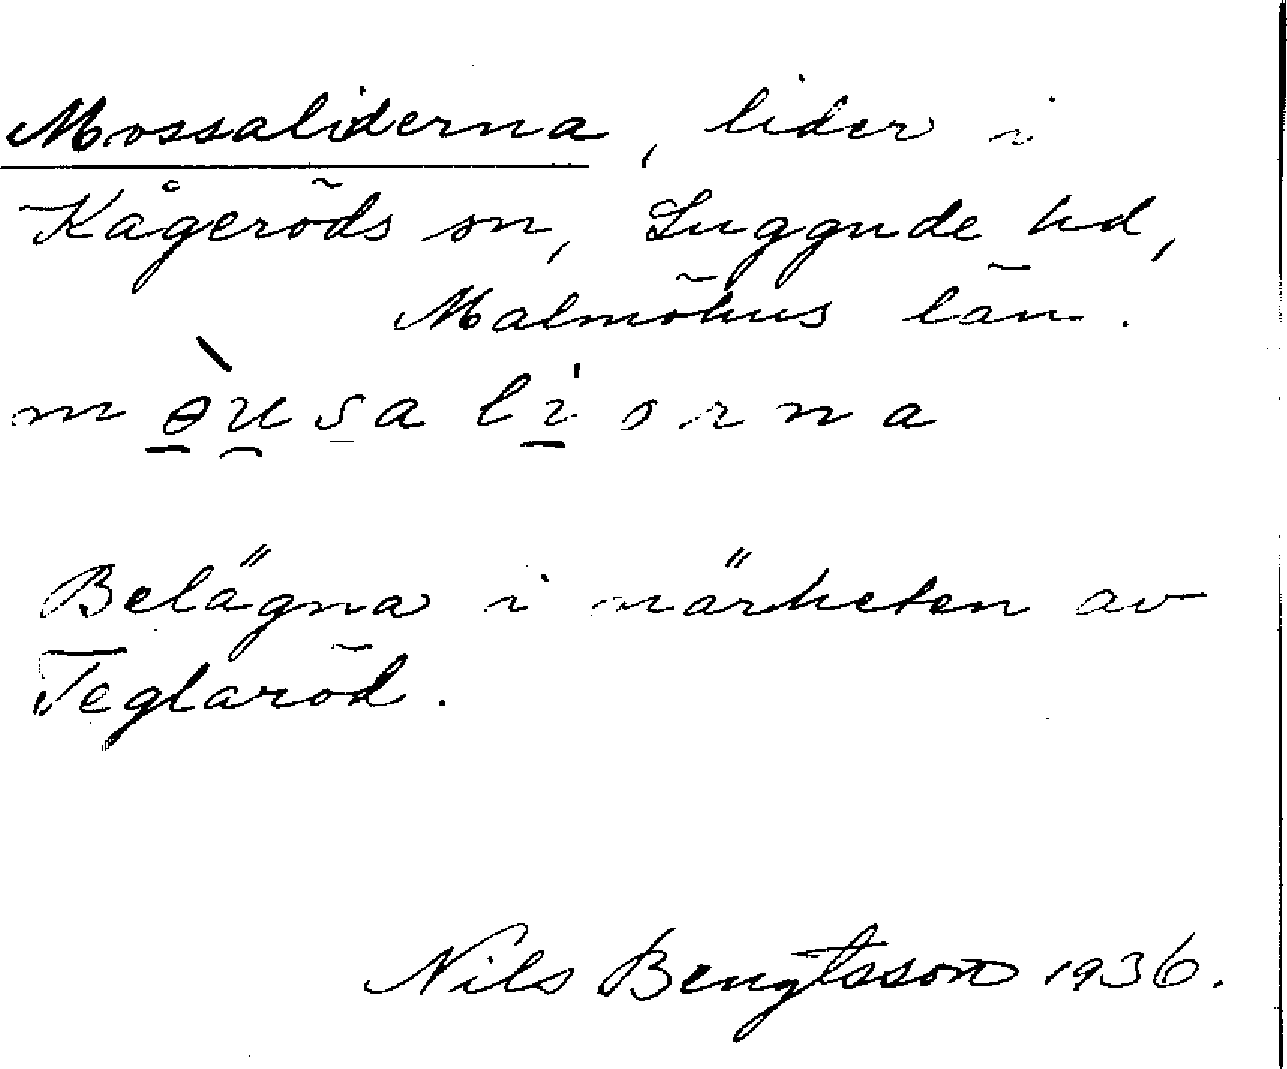 Mossaliderna, lider i
Kågeröds sn, Luggude hd,
Malmöhus län.
m ə̀u̯sa li ɔrna
Belägna i närheten av
Teglaröd.
Nils Bengtsson 1936.